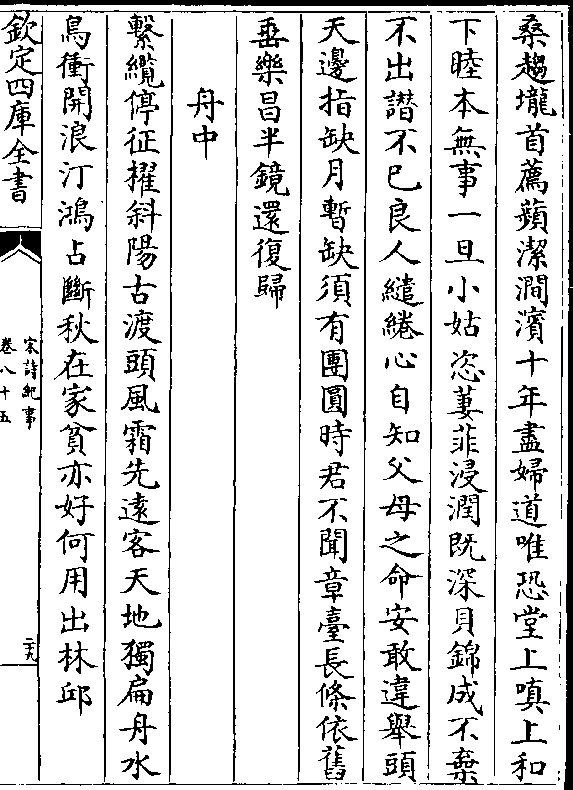 桑趨壠首薦蘋潔澗濱十年盡婦道唯恐堂上嗔上和
下睦本無事一旦小姑恣萋菲浸潤既深貝錦成不棄
不出譖不已良人繾綣心自知父母之命安敢違舉頭
天邊指缺月暫缺須有團圓時君不聞章臺長條依舊
垂樂昌半鏡還復歸
舟中
繫纜停征櫂斜陽古渡頭風霜先遠客天地獨扁舟水
鳥衝開浪汀鴻占斷秋在家貧亦好何用出林邱
欽定四庫全書
宋詩紀事
卷八十五
二十九